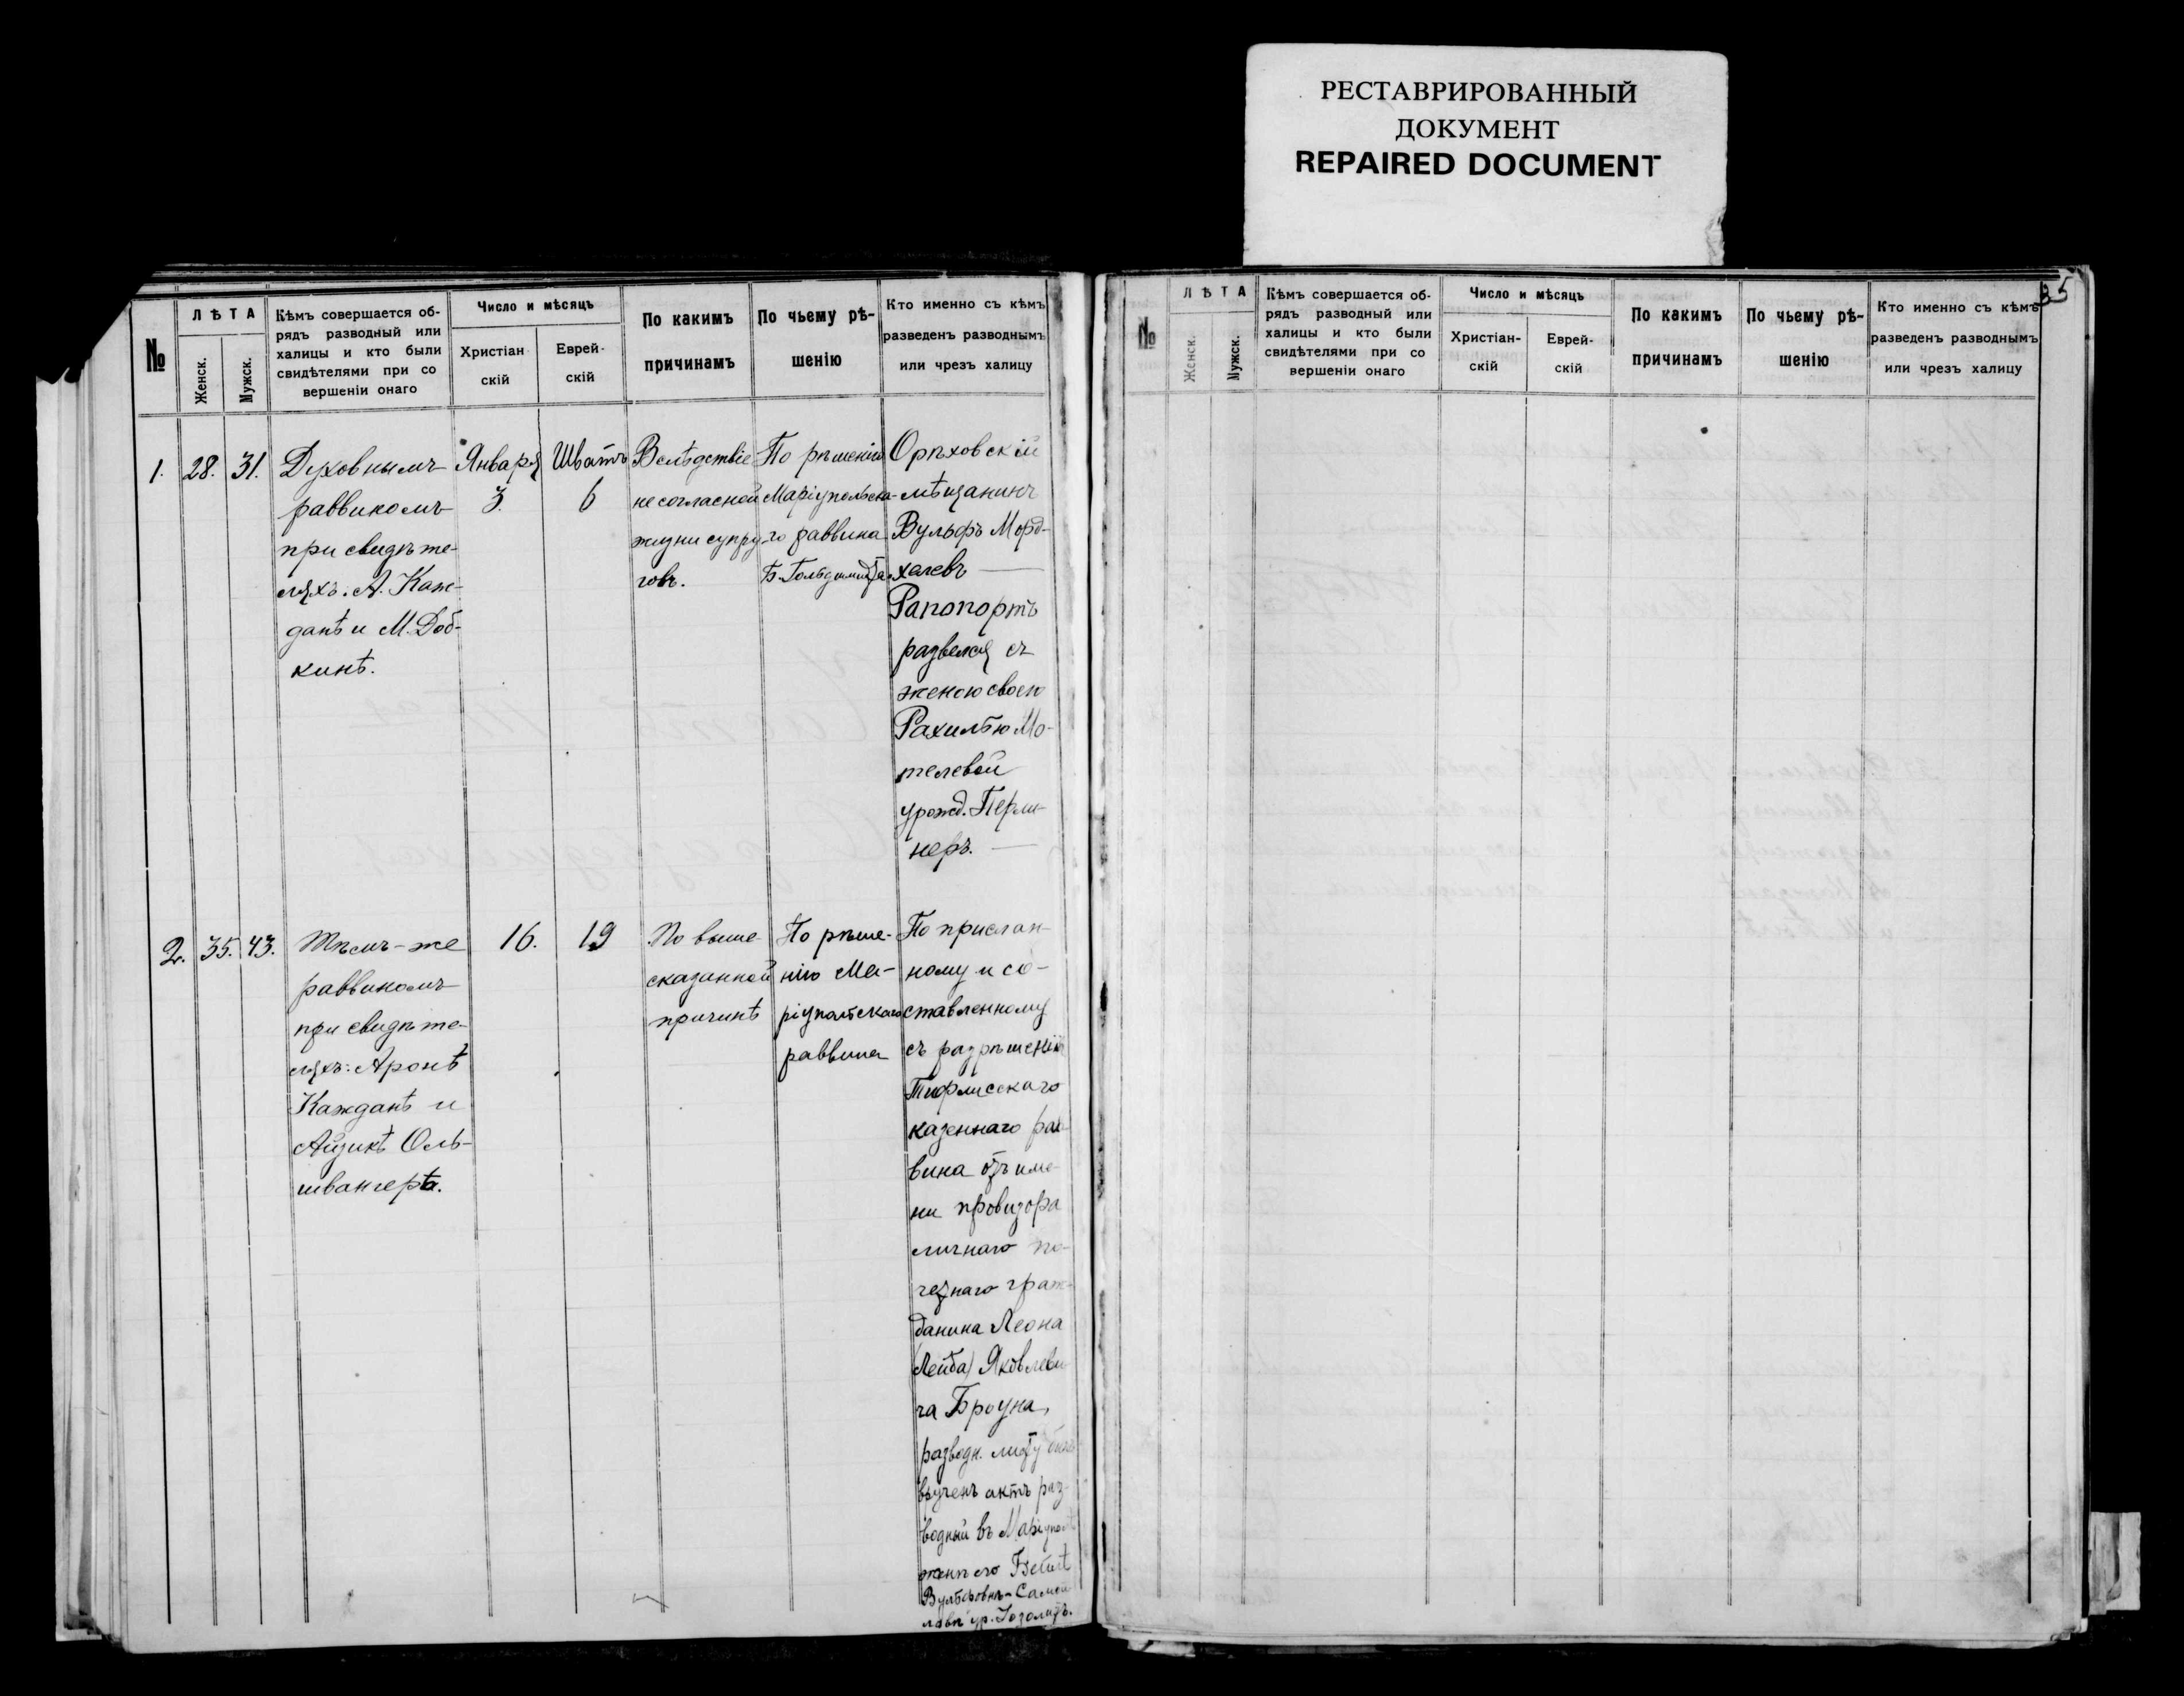 РЕСТАВРИРОВАННЫЙ
ДОКУМЕНТ
REPAIRED DOCUMENT
№
ЛѢТА
Женск.
Мужск.
Кѣмъ совершается об-
рядъ разводный или
халицы и кто были
свидѣтелями при со
вершеніи онаго
Число и мѣсяцъ
Христіан
скій
Еврей-
скій
По какимъ
причинамъ
По чьему рѣ-
шенію
Кто именно съ кѣмъ
разведенъ разводнымъ
или чрезъ халицу
1.
28.
31.
Духовнымъ
раввиномъ
при свидѣте-
ляхъ: А. Каж-
данѣ и М. Доб-
кинѣ.
Января
3.
Шватъ
6
Вслѣдствіе
несогласной
жизни супру-
говъ.
По рѣшенію
Маріупольска-
го раввина
Орѣховскій
мѣщанинъ
Вульфъ Морд-
халевъ
Рапопортъ
развелся съ
женою своею
Рахилью Мо-
телевой
урожд. Перли-
неръ.
2.
35.
43.
Тѣмъ-же
раввиномъ
при свидѣте-
ляхъ: Аронѣ
Кажданѣ и
Айзикѣ Оль-
швангерѣ.
16.
19
По выше
сказанной
причинѣ
По рѣше-
нію Ма-
ріупольскаго
раввина
По прислан-
ному и со-
ставленному
съ разрѣшенія
Тифлисскаго
казеннаго рав
вина отъ име
ни провизора
личнаго по-
четнаго граж-
данина Леона
(Лейба) Яковлеви
ча Броуна,
разводн. листу
врученъ актъ раз-
водный въ Маріуполѣ
женѣ его
Вульфовнѣ-Самой
ловнѣ ур.
35
№
ЛѢТА
Женск.
Мужск.
Кѣмъ совершается об-
рядъ разводный или
халицы и кто были
свидѣтелями при со
вершеніи онаго
Число и мѣсяцъ
Христіан-
скій
Еврей-
скій
По какимъ
причинамъ
По чьему рѣ-
шенію
Кто именно съ кѣмъ
разведенъ разводнымъ
или чрезъ халицу